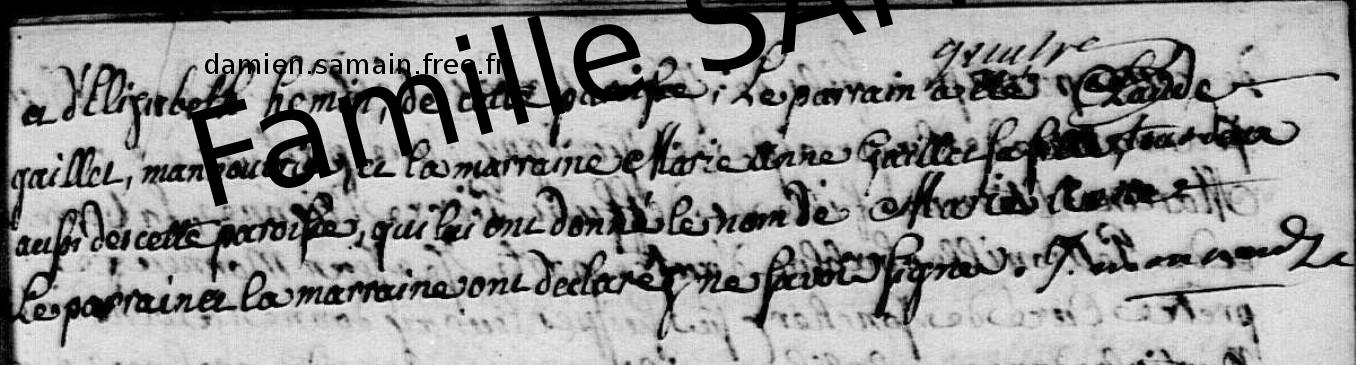 quatre
damien.samain.free.fr
Famille SA
et d'Elizabeth hemin, de cette paroisse ; Le parrain a été Claude
gaillet, et la marraine Marie Anne Gaillet tous deux
aussi de cette paroisse, qui lui ont donné le nom de Marie Anne
Le parrain et la marraine ont declaré ne savoir signer.